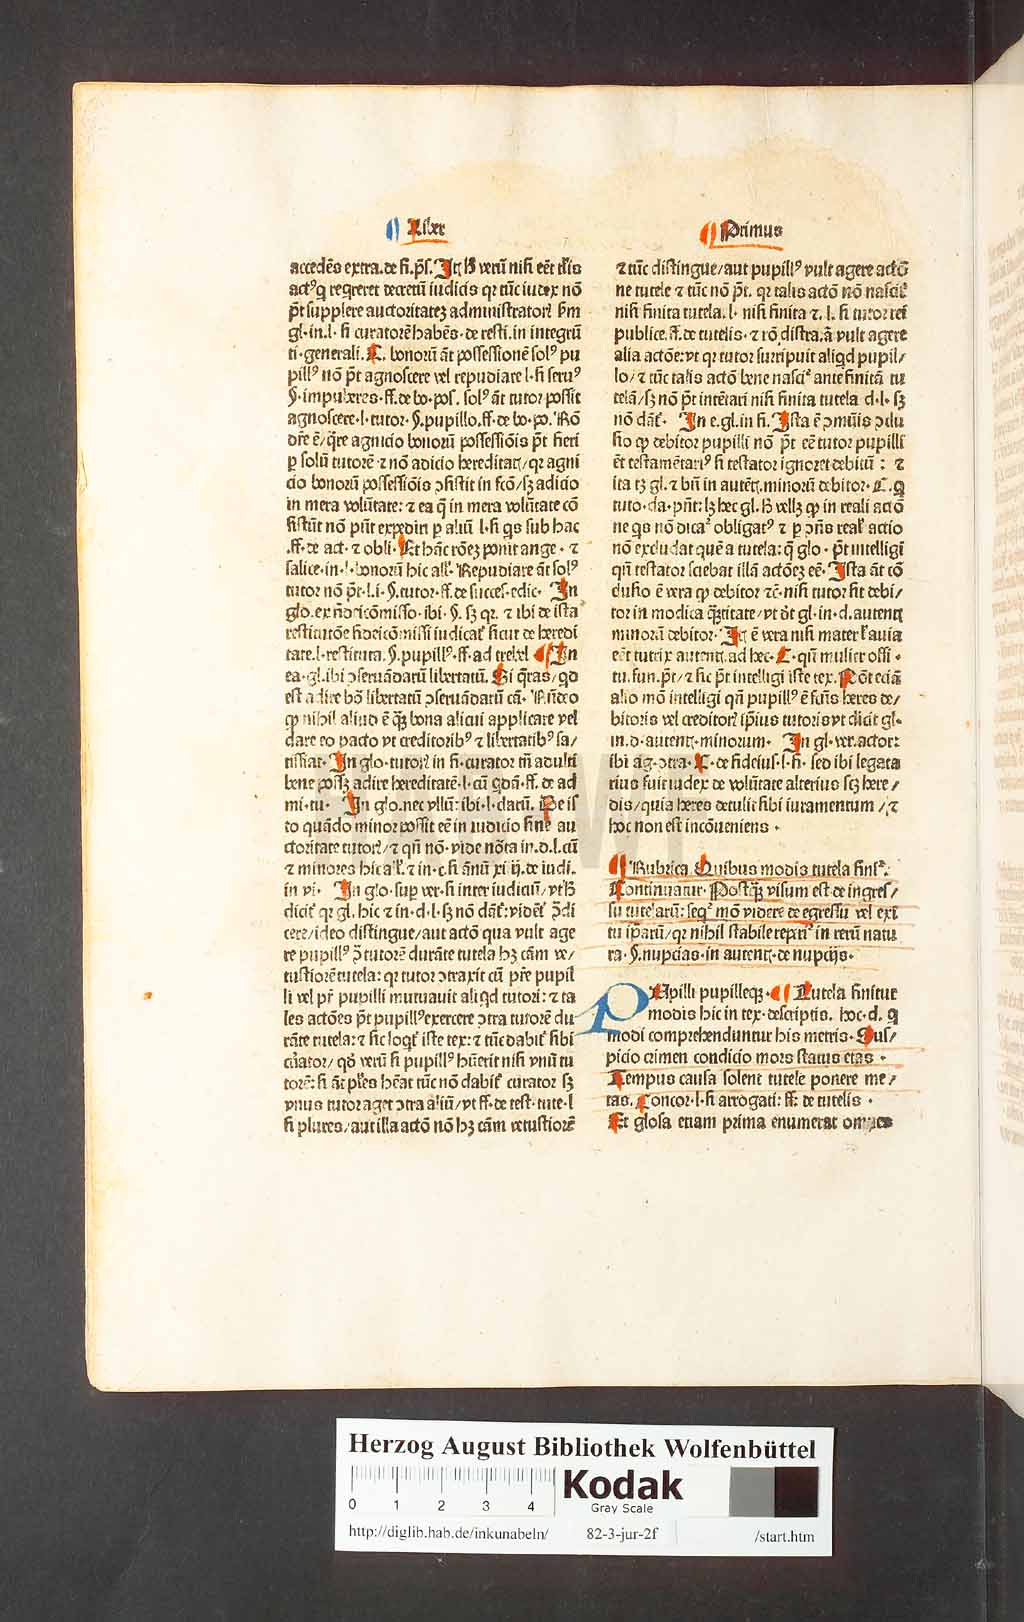 Liber
Primus
accedẽs extra. de fi. p̃s. Itẽ ꝟ verũ nisi eẽt tĩs
act⁹ q̃ reqreret decretũ iudicis qr tũc iudex nõ
p̃t supplere auctoritatez administrator̃ Bm̃
gl. in. l. si curatorẽ habẽs. de resti. in integrũ
ti. generali. C. bonorũ ãt possessionẽ sol⁹ pu
pill⁹ nõ p̃t agnoscere vel repudiare l. si seru⁹
§. impuberes. ff. de bo. pos. sol⁹ ãt tutor possit
agnoscere. l. tutor. §. pupillo. ff. de bo. po. Rõ
dr̃e ẽ/ q̃re agnitio bonorũ possessiõis p̃t fieri
ꝑ solũ tutorẽ ⁊ nõ adicio hereditatꝭ/ qr agni
cio bonorũ possessiõis ↄsistit in fcõ/ sꝫ adicio
in mera volũtate: ⁊ ea q̃ in mera volũtate cõ
sistũt nõ pñt expediri ꝑ aliũ l. si q̃s sub hac
.ff. de act. ⁊ obli. Et hãc rõez ponit ange. ⁊
salice. in. l. bonorũ hic all̃. Repudiare ãt sol⁹
tutor nõ p̃t. l. i. §. tutor. ff. de succes. edic. In
glo. ex ñdeicõmisso. ibi. §. sꝫ qr. ⁊ ibi de ista
restitutõe fideicõmissi iudicat̃ sicut de heredi
tate. l. restituta. §. pupill⁹. ff. ad trebel. In
ea. gl. ibi ↄseruãdarũ libertatũ. Si q̃ras/ qd
est adire bõ libertatũ ↄseruãdarũ cã. Rñdeo
qꝫ nihil aliud ẽ q̃ꝫ bona alicui applicare vel
dare eo pacto vt creditorib⁹ ⁊ libertatib⁹ sa/
tisfiat. In glo. tutor̃ in fi. curator tñ adulti
bene possꝫ adire hereditatẽ. l. cũ q̃dã. ff. de ad
mi. tu. In glo. nec vllũ: ibi. l. datũ. De is
to quãdo minor possit eẽ in iudicio sine au
ctoritate tutor̃/ ⁊ qñ nõ. vide nõta in. d. l. cũ
⁊ minores hic all̃. ⁊ in. c. fi ãnũ xi ij. de iudi.
in vi. In glo. sup ver. si inter iudiciũ/ vt ꝟ
dicit̃ qr gl. hic ⁊ in. d. l. sꝫ nõ dãt̃: videt̃ ꝯdi
cere/ ideo distingue/ aut actõ qua vult age
re pupill⁹ ꝯ tutorẽ durãte tutela hꝫ cãm ve/
tustiorẽ tutela: qr tutor ↄtraxit cũ p̃re pupil
li vel pr̃ pupilli mutuauit aliqd tutori: ⁊ ta
les actões p̃t pupill⁹ exercere ↄtra tutorẽ du
rãte tutela: ⁊ sic loqt̃ iste tex: ⁊ tũc dabit̃ sibi
curator/ qd verũ si pupill⁹ hũerit nisi vnũ tu
torẽ: si ãt pl̃es hẽat tũc nõ dabit̃ curator sꝫ
vnus tutor aget ↄtra aliũ/ vt ff. de test. tute. l
si plures/ aut illa actõ nõ hꝫ cãm vetustiorẽ
⁊ tũc distingue/ aut pupill⁹ vult agere actõ
ne tutele ⁊ tũc nõ p̃t. qr talis actõ nõ nascit̃
nisi finita tutela. l. nisi finita ⁊. l. si tutor rei
publice. ff. de tutelis. ⁊ rõ. distra. ã vult agere
alia actõe: vt qr tutor surripuit aliqd pupil/
lo/ ⁊ tũc talis actõ bene nascit̃ ante finitã tu
telã/ sꝫ nõ p̃t intẽtari nisi finita tutela d. l. sꝫ
nõ dãt̃. In e. gl. in fi. Ista ẽ ↄmũis ↄclu
sio qꝫ debitor pupilli nõ p̃t eẽ tutor pupilli
ẽt testamẽtari⁹ si testator ignoret debitũ: ⁊
ita tꝫ gl. ⁊ bñ in autẽtꝭ. minorũ debitor. C. q̃
tuto. da. pñt: lꝫ hec gl. ꝟ vellꝫ qꝫ in reali actõ
ne q̃s nõ dicat̃ obligat⁹ ⁊ ꝑ ↄñs real̃ actio
nõ excludat quẽ a tutela: q̃ glo. p̃t intelligi
qñ testator sciebat illã actõez eẽ. Ista ãt cõ
clusio ẽ vera qꝫ debitor ⁊c̃. nisi tutor sit debi/
tor in modica q̃titate/ vt dt̃ gl. in. d. autentꝭ
minorũ debitor. Itẽ ẽ vera nisi mater l̃ auia
eẽt tutrix autentꝭ. ad hec. C. qñ mulier offi.
tu. fun. p̃t/ ⁊ sic p̃t intelligi iste tex. Põt eciã
alio mõ intelligi qñ pupill⁹ ẽ fcũs heres de/
bitoris vel creditor̃ ip̃ius tutoris vt dicit gl.
in. d. autentꝭ. minorum. In gl. ver. actor:
ibi ãg. ↄtra. C. de fideius. l. fi. sed ibi legata
rius fuit iudex de volũtate alterius scꝫ here/
dis/ quia heres detulit sibi iuramentum/ ⁊
hoc non est incõueniens.
Rubrica Quibus modis tutela finit̃.
Continuatur. Postq̃ꝫ visum est de ingres/
su tutelarũ: seqt̃ mõ videre de egressu vel exi
tu ip̃arũ/ qr nihil stabile reperit̃ in rerũ natu
ra. §. nupcias. in autentꝭ. de nupcijs.
PUpilli pupilleqꝫ. Tutela finitur
modis hic in tex. descriptis. hoc. d. q̃
modi comprehenduntur his metris. Sus/
picio crimen condicio mors status etas.
Tempus causa solent tutele ponere me/
tas. Concor. l. si arrogati: ff. de tutelis.
Et glosa etiam prima enumerat omnes
HAB WF
Herzog August Bibliothek Wolfenbüttel
0 1 2 3 4
Kodak
Gray Scale
http://diglib.hab.de/inkunabeln/ 82-3-jur-2f /start.htm